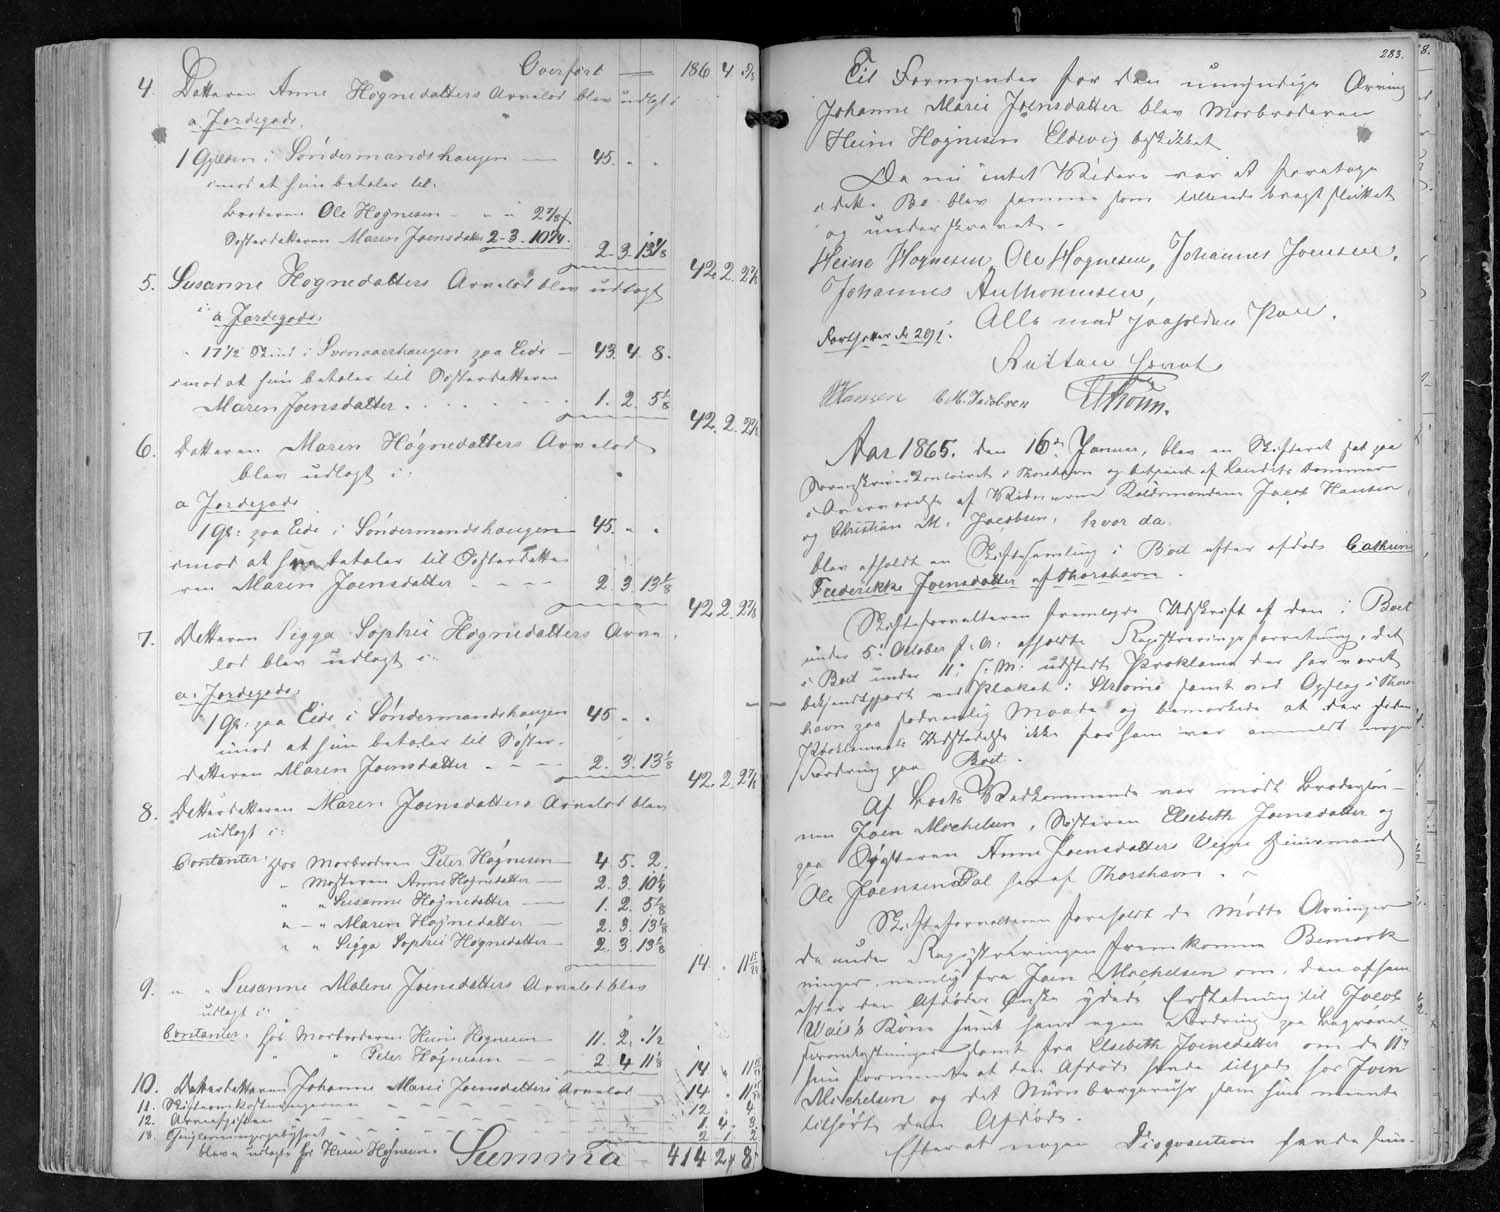 Overført — 186 4 3/8
4. Datteren Anne Høgnedatters Arvelod blev udlagt i
a Jordegods.
1 Gylden i Sóndermandshaugen — 45. " "
imod at hun betaler til:
Broderen Ole Høgnesen - " " 2 7/8 f
Søsterdatteren Maren Joensdatter 2-3. 10 1/4.
2. 3. 13 1/8
42. 2. 2 7/8
5. Susanne Høgnedatters Arvelod blev udlagt
i: a Jordegods:
17 1/2 Skind i paa Eide — 43. 4. 8.
imod at hun betaler til Søsterdatteren
Maren Joensdatter . . . . . . 1. 2. 5 1/8
42. 2. 2 7/8
6. Datteren Maren Høgnedatters Arvelod
blev udlagt i:
a Jordegods
1 Gl: paa Eide i Sóndermandshaugen — 45 " "
imod at hun betaler til Søsterdatte-
ren Maren Joensdatter - - - - 2. 3. 13 1/8
42. 2. 2 7/8
7. Datteren Sigga Sophie Høgnedatters Arve-
lod blev udlagt i:
a: Jordegods:
1 Gl: paa Eide i Sóndermandshaugen 45 " .
imod at hun betaler til Søster-
datteren Maren Joensdatter - - - 2. 3. 13 1/8
42. 2. 2 7/8
8. Datterdatteren Maren Joensdatters Arvelod blev
udlagt i:
Contanter hos Morbroderen Peter Høgnesen — 4 5. 2.
" Mosteren Anne Høgnedatter — 2. 3. 10 1/4
" " Susanne Høgnedatter — 1. 2. 5 1/8
" - " Maren Høgnedatter — 2. 3. 13 1/8
" " Sigga Sophie Høgnedatter — 2. 3. 13 1/8
14 . 11
9. " " Susanne Malene Joensdatters Arvelod blev
udlagt i:
Contanter. hos Morbroderen Heine Høgnesen — 11. 2. 1/2
" " Peter Høgnesen — 2 4 11 1/8
14 " 11
10. Datterdatteren Johanne Marie Joensdatters Arvelod — 14 . 11
11. Skifteomkostningerne - - - 12 . 4
12. Arveafgiften - - - 1. 4. 3
13. - - - 2 1 2
bleve udlagte for Heine Høgnesen. Summa — 414 2 8
283.
Til Formynder for den umyndige Arving
Johanne Marie Joensdatter blev Morbroderen
Heine Høgnesen Eldevig beskikket
Da nu intet Videre var at foretage
i dette Bo blev samme som tilendebragt sluttet
og underskrevet.
Heine Høgnesen, Ole Høgnesen, Johannes Joensen,
Johannes Anthoniusen,
Alle med paaholden Pen.
Fortsættes Fo 291.
Retten hævet
Hansen C. M. Jacobsen
Aar 1865. den 16de Januar, blev en Skifteret sat paa
Sorenskrivercontoiret i Thorshavn og betjent af Landets Dommer
i Overværelse af Vidnerne Jacob Hansen
og Christian M. Jacobsen, hvor da.
blev afholdt en Skiftesamling i Boet efter afdøde Cathrine
Frederikke Joensdatter af Thorshavn.
Skifteforvalteren fremlagde Udskrift af den i Boet
under 5te October f. A. afholdte Registreringsforretning, det
i Boet under 11. s. M. udstedte Proklama der har været
bekjendtgjort ved Plakat i Strømø samt ved Opslag i Thors-
havn paa sædvanlig Maade og bemærkede at der siden
Proklamaets Udstedelse ikke for ham var anmeldt nogen
Fordring paa Boet.
Af Boets Vedkommende var mødt Brodersøn-
nen Joen Mechelsen, Søsteren Elsebeth Joensdatter og
paa Søsteren Anne Joensdatters Vegne
Ole Joensen Dal her af Thorshavn. -
Skifteforvalteren foreholdt de mødte Arvinger
de under Registreringen fremkomne Bemærk-
ninger, nemlig fra Joen Mechelsen om, den af ham
efter den Afdødes Ønske ydede Erstatning til Jacob
Wais's Kone samt hans egen Fordring paa Begravel-
samt fra Elsebeth Joensdatter om de 11
hun formente at den Afdøde havde tilgode hos Joen
Mechelsen og det Nürnbergeruhr som hun mente
tilhørte den Afdøde.
Efter at nogen Disposition